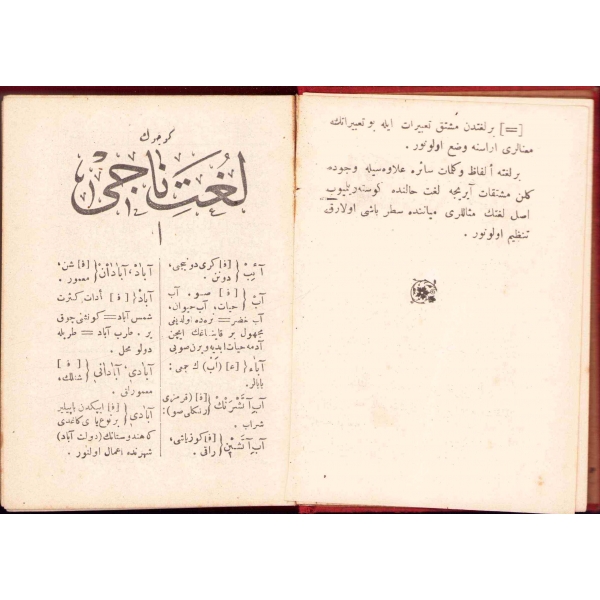 [=] بر لغتدن مشتق تعبیرات ایله بو تعبیراتك
معنالری اراسنه وضع اولونور .
بر لغته ألفاظ وكلمات سائره علاوه‌سیله وجوده
كلن مشتقات آیریجه لغت حالنده كوسته‌ریلیوب
اصل لغتك مثاللری میاننده سطر باشی اولارق
تنظیم اولونور .
كوچوك
لُغَتِ نَاجِیْ
ا
آئِبْ { [ع] كری دونیجی،
دونن .
آبْ { [ف] صو . آب
حیات، آب حیوان،
آب خضر = نره‌ده اولدیغی
مجهول بر قایناغك ایچن
آدمه حیات ابدیه ویرن صویی
آباء { [ع] (أب) ك جمی :
بابالر .
آبِ آتَشْرَنْكْ { [ف] (قرمزی
رنكلی صو) :
شراب .
آبِ آتَشْینْ { [ف] كوزیاشی،
راقی .
آبادْ، آبادانْ { [ف] شن،
معمور .
آبادْ { [ف] أدات كثرت
شمس آباد = كونشی چوق
یر . طرب آباد = طربله
دولو محل .
آبادی، آبادانی { [ف]
شنلك،
معمورلق .
آبادی { [ف] ایپكدن یاپیلیر
بر نوع یازی كاغدی
كه هندوستانك (دولت آباد)
شهرنده اعمال اولنور .